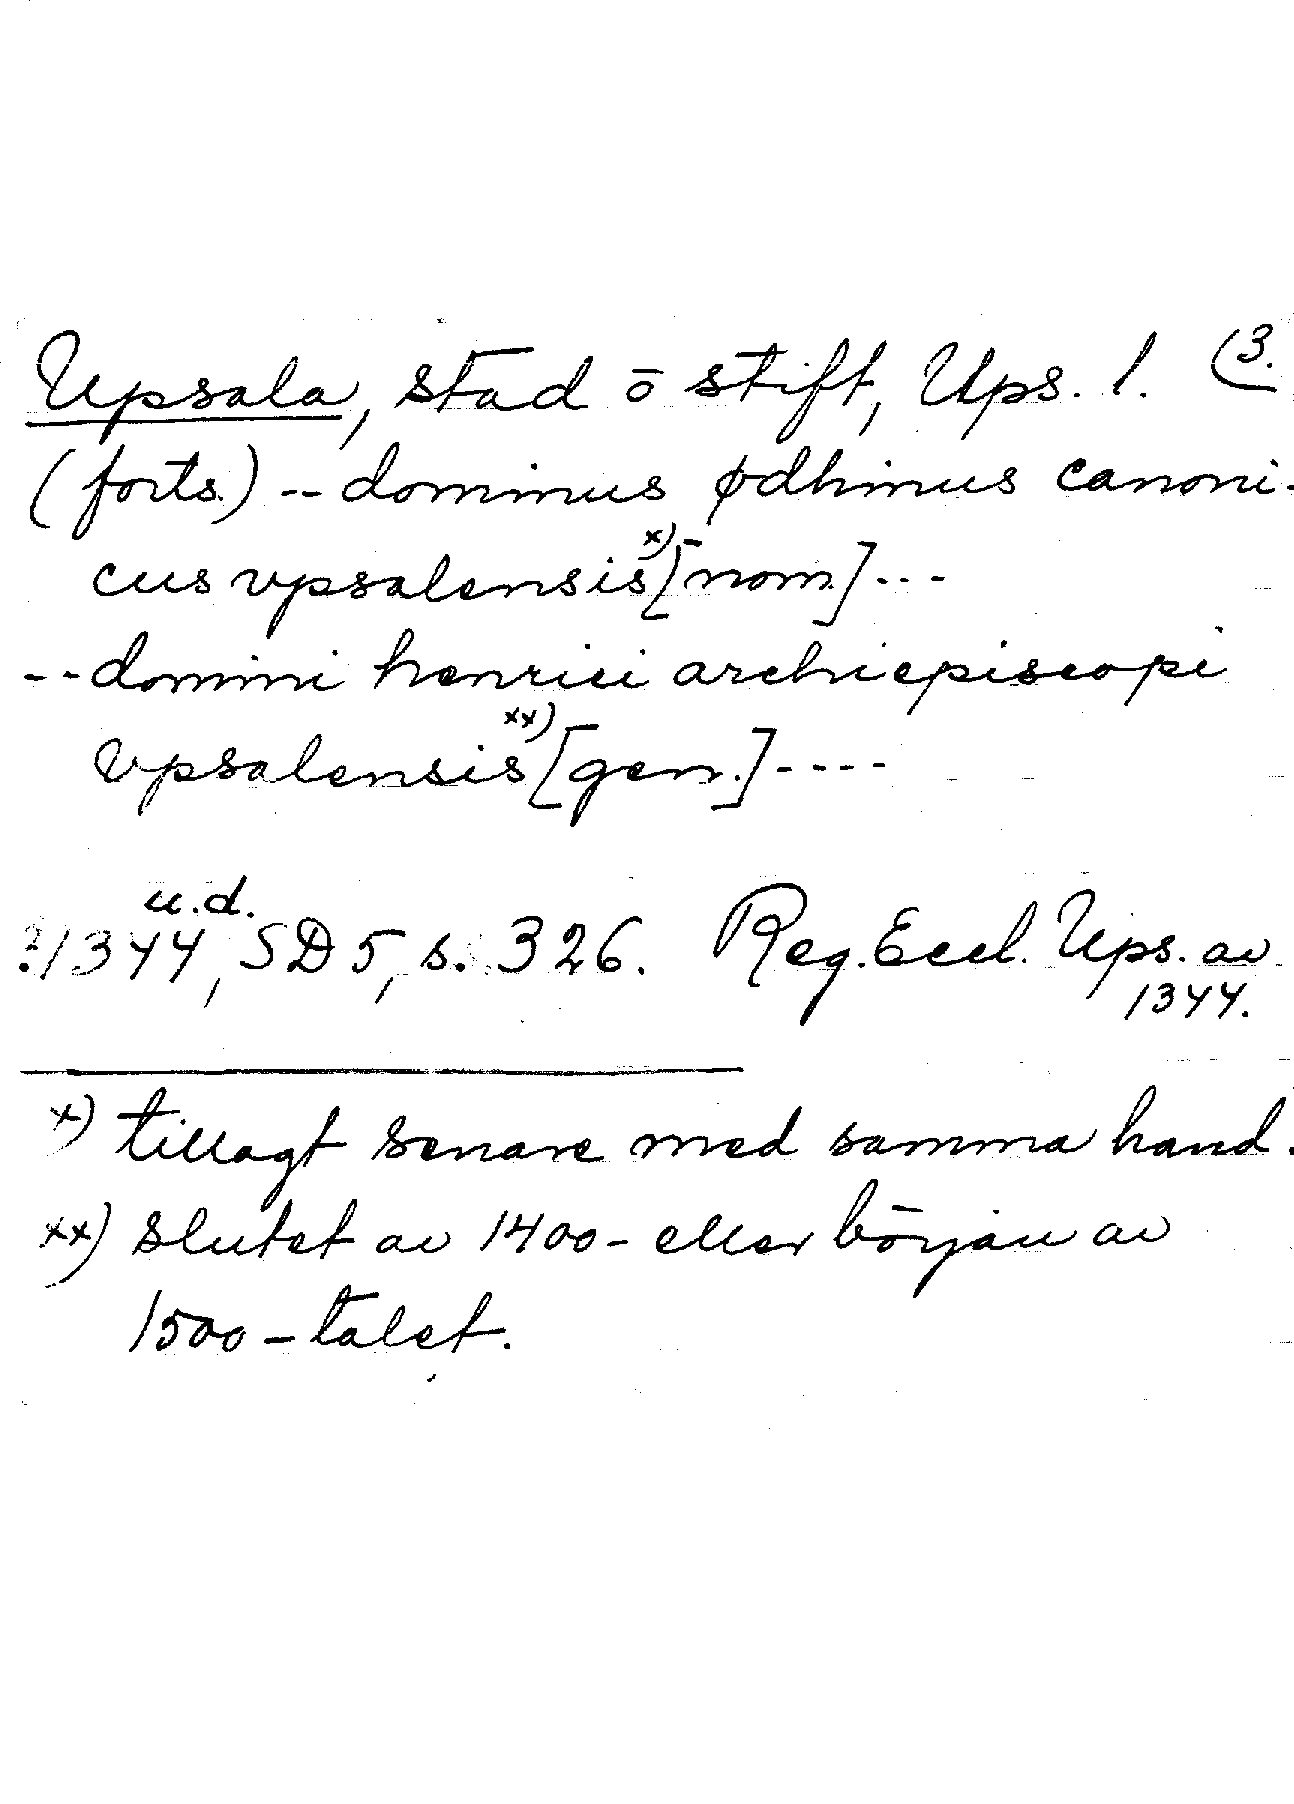 Upsala, stad o stift, Ups. l. (3.
(forts.) -- dominus ødhinus canoni-
cus vpsalensis x) [nom.] ---
-- domini henrici archiepiscopi
vpsalensis xx) [gen.] ----
u.d.
?1344, SD 5, s. 326. Reg. Eccl. Ups. av
1344.
x) tillagt senare med samma hand.
xx) slutet av 1400- eller början av
1500-talet.